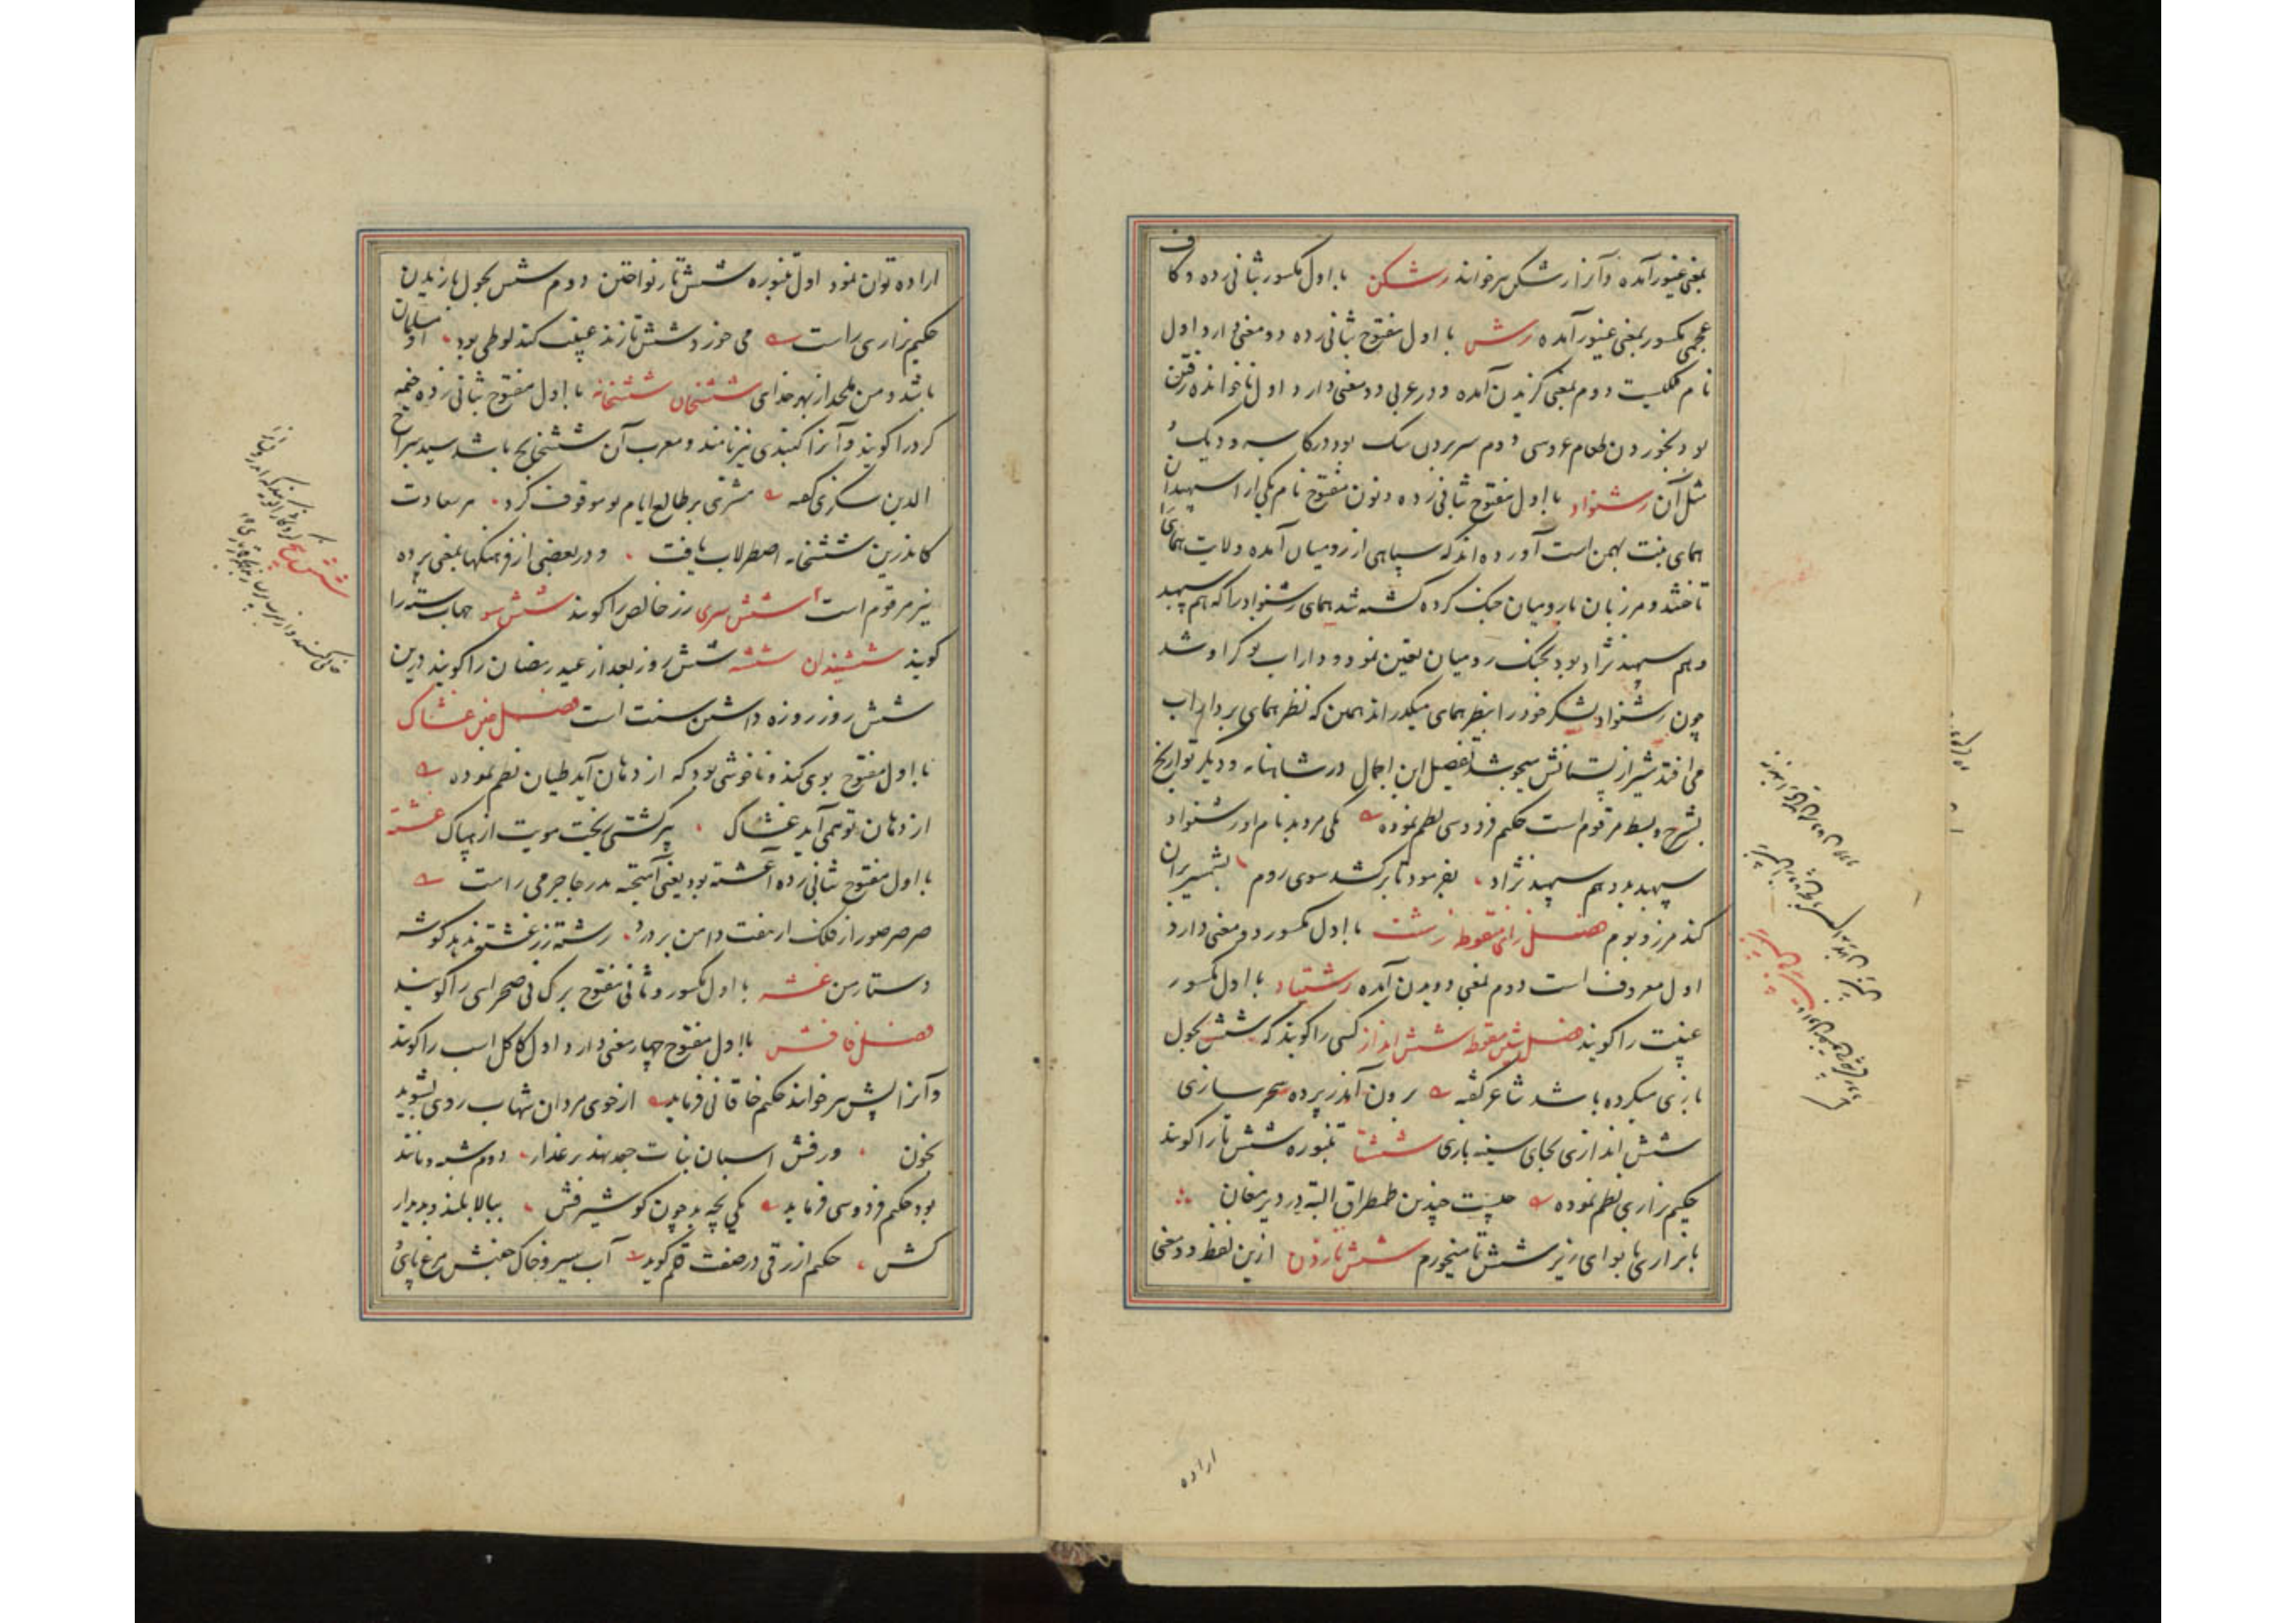 بمعنی غیور آمده و آنرا رشکن نیز خوانند رشکن با اول مکسور بثانی زده و کاف
عجمی مکسور بمعنی غیور آمده رش با اول مفتوح بثانی زده دو معنی دارد اول
نام ملکیست دوم بمعنی گزیدن آمده و در عربی دو معنی دارد اول ناخوانده رفتن
بود بخوردن طعام عروسی دوم سر بردن سک بود در کاسه و دیک و
مثل آن رشنواد با اول مفتوح بثانی زده و نون مفتوح نام یکی از اسپهبدان
همای بنت بهمن است آورده اند که سپاهی از رومیان آمده ولایت همای را
تاختند و مرزبان با رومیان جنک کرده کشته شد همای رشنواد را که هم سپهبد
و هم سپهبد نژاد بود بجنک رومیان تعین نمود و داراب نوکر او شد
چون رشنواد لشکر خود را بنظر همای میگذراند همین که نظر همای بر داراب
می افتد شیر از پستانش میجوشد تفصیل این اجمال در شاهنامه و دیگر تواریخ
بشرح و بسط مرقوم است حکیم فردوسی نظم نموده یکی مرد بد نام او رشنواد
سپهبد بد و هم سپهبد نژاد بفرمود تا برکشد سوی روم بشمشیر ویران
کند مرز و بوم فصل زای منقوطه زشت با اول مکسور دو معنی دارد
اول معروف است دوم بمعنی دویدن آمده زشتیاد با اول مکسور
غیبت را کویند فصل شین منقوطه شش انداز کسی را کویند که شش بجول
بازی میکرده باشد شاعر گفته برون آمد ز پرده سحر سازی
شش اندازی بجای سینه بازی ششتا تنبوره شش تار را کویند
حکیم نزاری نظم نموده چیست چندین طمطراق البته در دیر مغان
با نزاری با نوای زیر ششتا میخورم ششتا زدن ازین لفظ دو معنی
اراده
اراده توان نمود اول تنبوره شش تار نواختن دوم شش بجول بازیدن
حکیم نزاری راست می خورد و ششتا زند غیبت کند لوطی بود او مسلمان
باشد و من ملحد از بهر خدای ششخان ششخانه با اول مفتوح بثانی زده خیمه
کرد را کویند و آنرا کنبدی نیز نامند و معرب آن ششخانج باشد سید سراج
الدین سکزی گفته مشتری بر طالع ایام تو موقوف کرد هر سعادت
کاندرین ششخانه اصطرلاب یافت و در بعضی از فرهنگها بمعنی پرده
نیز مرقوم است شش سری زر خالص را کویند شش سو جهات سته را
کویند ششیندان ششه شش روز بعد از عید رمضان را کویند و درین
شش روز روزه داشتن سنت است فصل غین غشاک
با اول مفتوح بوی کند و ناخوشی بود که از دهان آید طیان نظم نموده
از دهان تو همی آید غشاک پیر گشتی ریخت مویت از هباک غشته
با اول مفتوح بثانی زده آغشته بود یعنی آمیخته بدر جاجرمی راست
صرصر صور از فلک ار هفت دامن بردرد رشته زر غشته ندهد گوشه
دستار من غشه با اول مکسور و ثانی مفتوح برک نی صحرای را کویند
فصل فا فش با اول مفتوح چهار معنی دارد اول کاکل اسب را کویند
و آنرا پش نیز خوانند حکیم خاقانی فرماید از خوی مردان شهاب روی بشوید
بخون ورفش اسبان نبات جعد نهد بر عذار دوم شبه و مانند
بود حکیم فردوسی فرماید یکی بچه بد چون گو شیر فش ببالا بلند و بدیدار
کش حکیم ازرقی در صفت قلم کوید آب سیر و خاک جنبش مرغ پای و